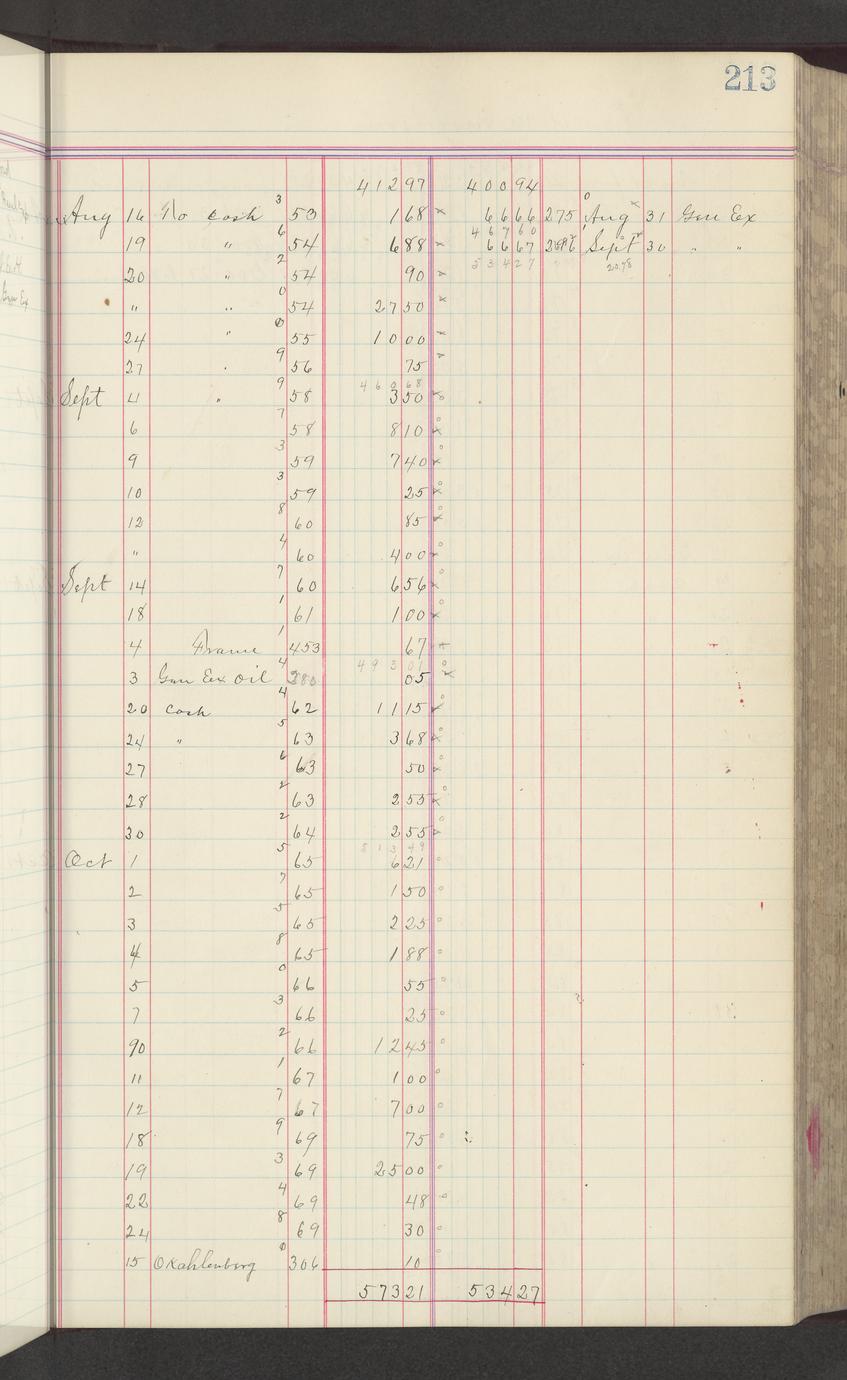 213
412 97 400 94
Aug 16 To cash 3 53 1 68 x 66 66 275 Aug 31 Gen Ex
467 60
19 " 6 54 6 88 x 66 67 Sept 30 " "
534 27 20.78
20 " 2 54 90 x
" " 0 54 27 50 x
24 " 0 55 10 00 x
27 " 9 56 75 x
460 68
Sept 4 " 9 58 3 50 x
6 7 58 8 10 x
9 3 59 7 40 x
10 3 59 25 x
12 8 60 85 x
" 4 60 4 00 x
Sept 14 7 60 6 56 x
18 1 61 1 00 x
4 Frame 1 453 67 x
493 01
3 Gen Ex Oil 4 280 05 x
20 cash 4 62 11 15 x
24 " 5 63 3 68 x
27 6 63 50 x
28 2 63 2 55 x
30 2 64 2 55 x
513 49
Oct 1 5 65 6 21
2 7 65 1 50
3 5 65 2 25
4 8 65 1 88
5 0 66 55
7 3 66 25
90 2 66 12 45
11 1 67 1 00
12 7 67 7 00
18 9 69 75
19 3 69 25 00
22 4 69 48
24 8 69 30
15 O Kahlenberg 0 306 10
573 21 534 27